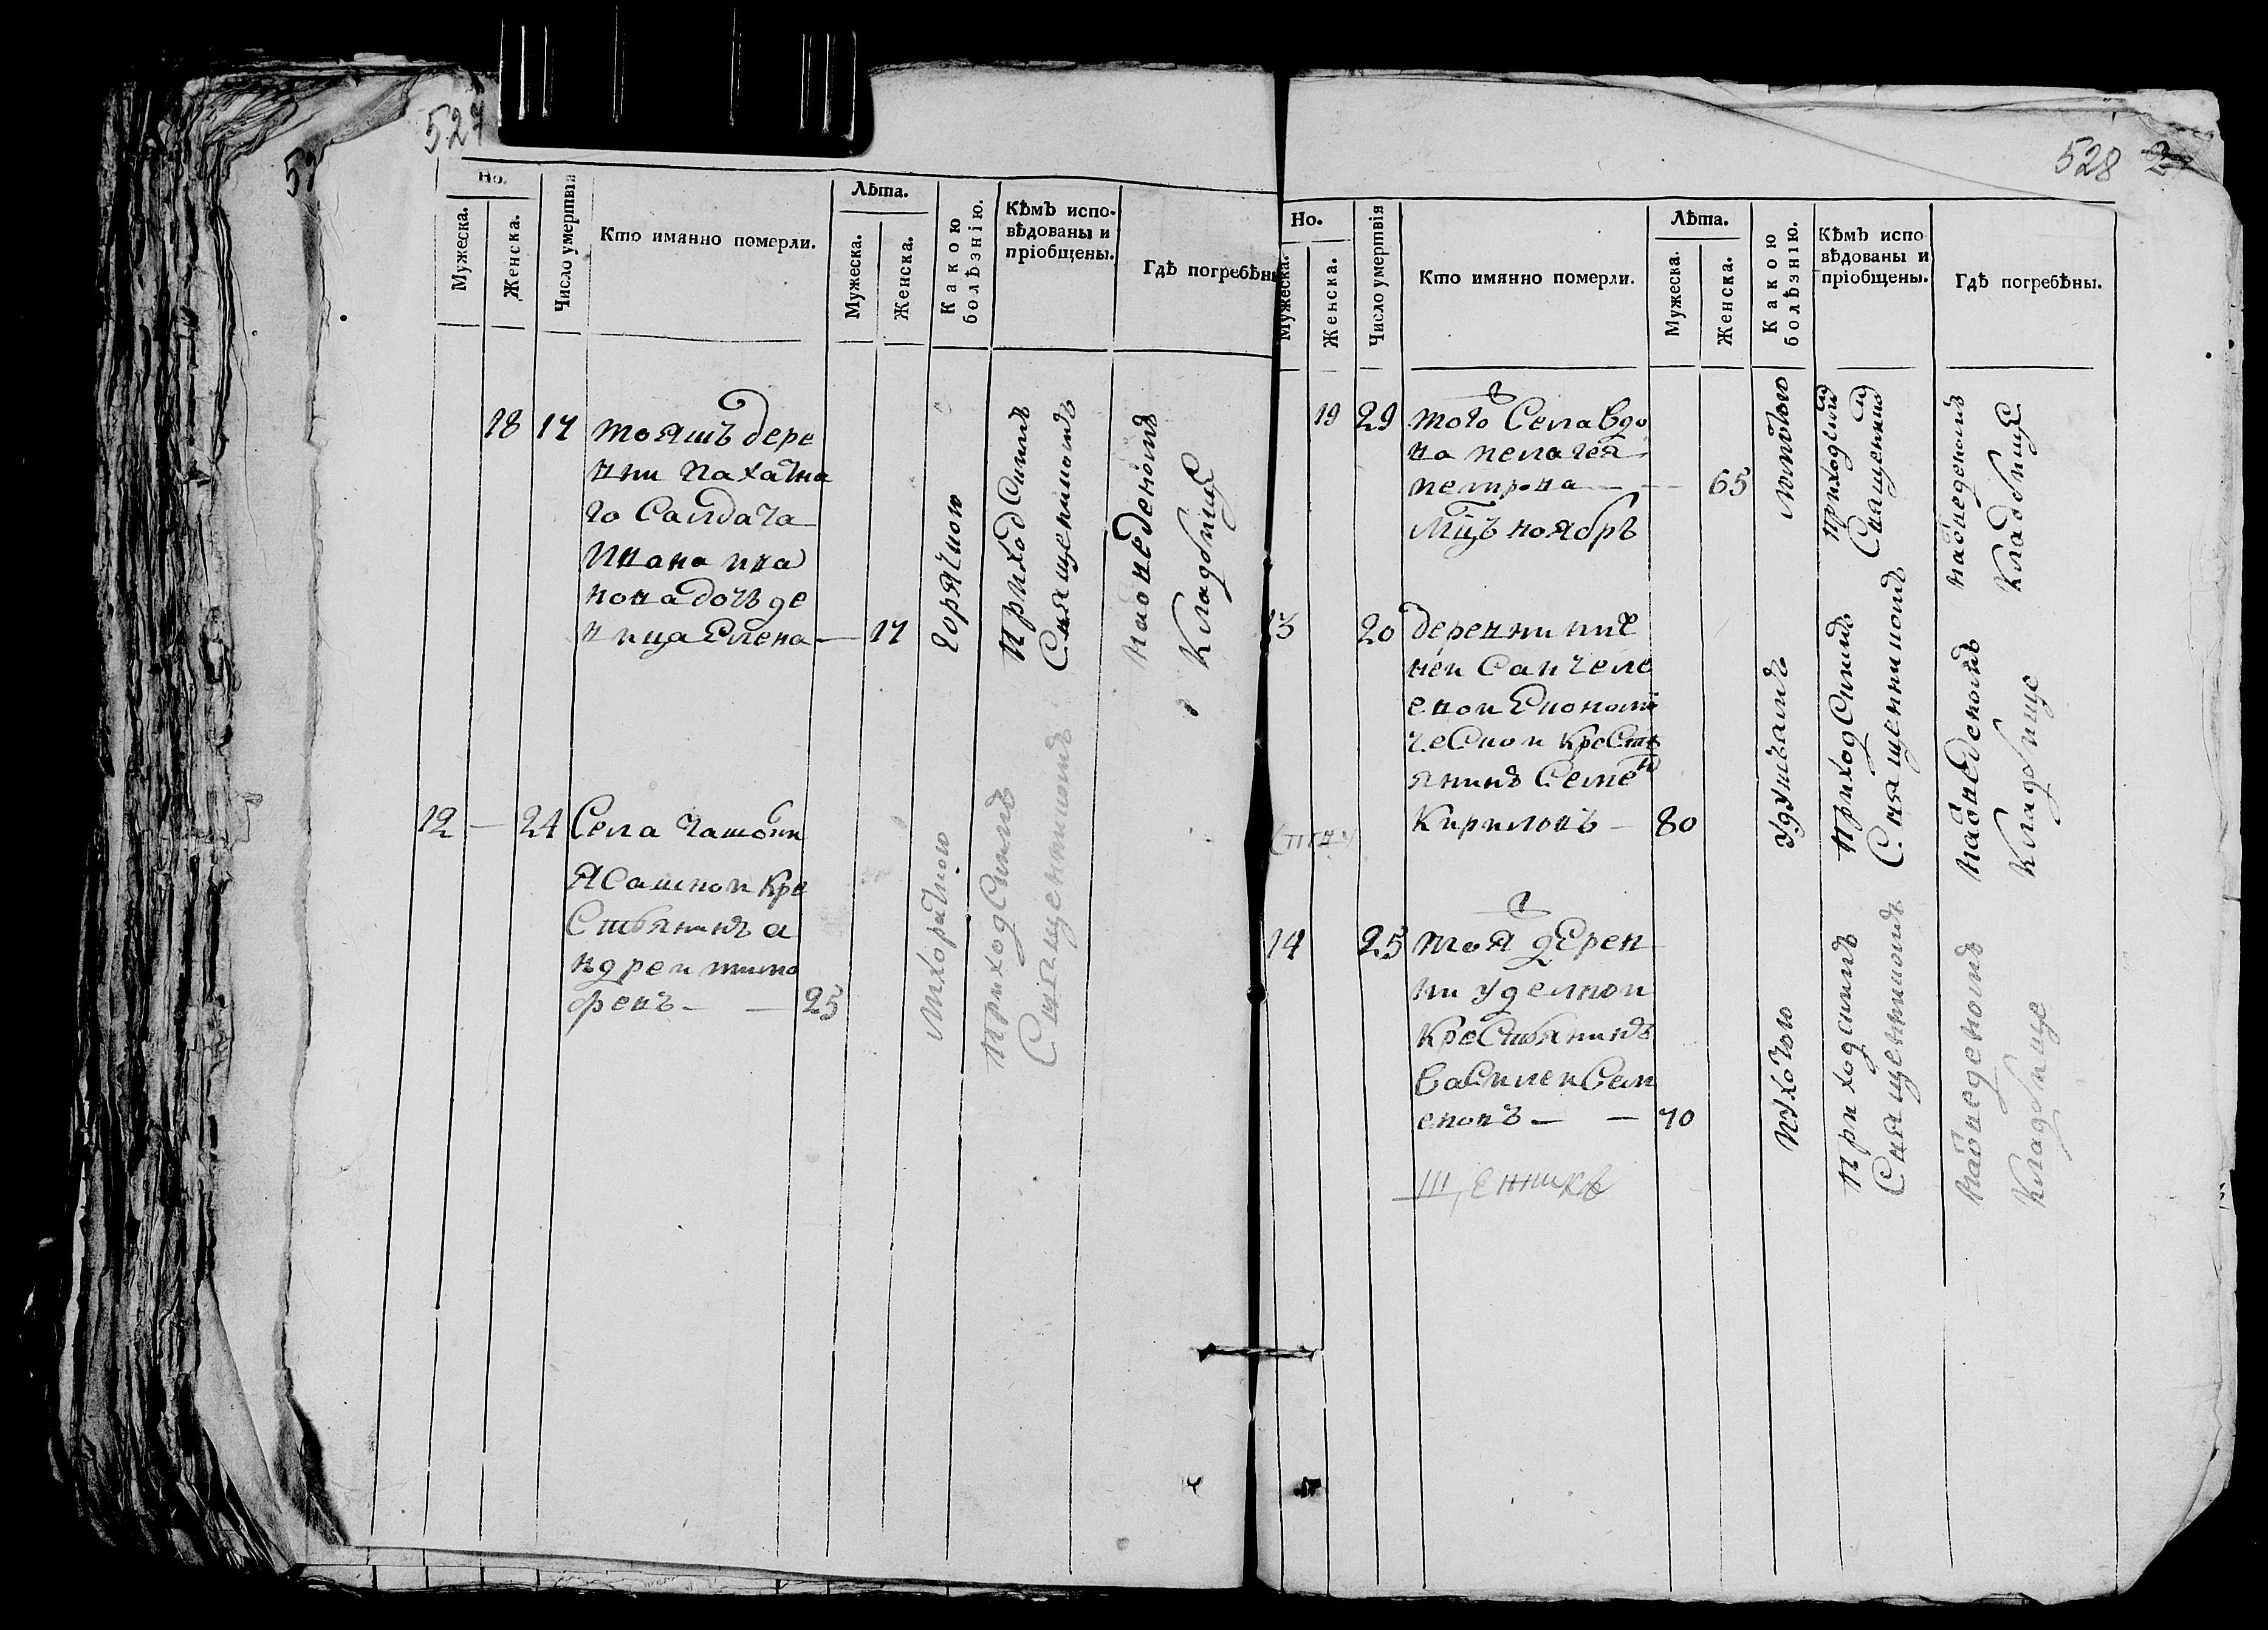 527
Но.
Мужеска.
Женска.
Число умертвія
Кто имянно померли.
Лѣта.
Мужеска.
Женска.
Какою болѣзнію.
Кѣмъ испо-
вѣдованы и
пріобщены.
Гдѣ погребѣны
18 17 тояжъ дере
вни пахатна
го Салдата
Ивана ива
нова дочь де
вица Елена — 17
горячкою
Приход Скимъ
Священникомъ
на отведеномъ
Кладбище
12 — 24 Села
Ясашнои Кре
Стьянинъ а
ндреи тимо
феевъ — — 25
Приход Скимъ
Священникомъ
528
Но.
Мужеска.
Женска.
Число умертвія
Кто имянно померли.
Лѣта.
Мужеска.
Женска.
Какою болѣзнію.
Кѣмъ испо
вѣдованы и
пріобщены.
Гдѣ погребѣны.
19 29 того Села вдо
ва пелагея
петрова — — 65
Мцъ ноябрь
приходским
Священико
на отведеномъ
Кладбище
13 20 деревни
Економи
ческои КреСть
янинъ Семен
Кириловъ — 80
удушъемъ
Приход Скимъ
Священникомъ
на отведеномъ
Кладбище
14 25 тоя дерев
ни уделнои
КреСтьянинъ
ваСилеи Сем
еновъ — — 70
приходскимъ
Священникомъ
на отведеномъ
Кладбище